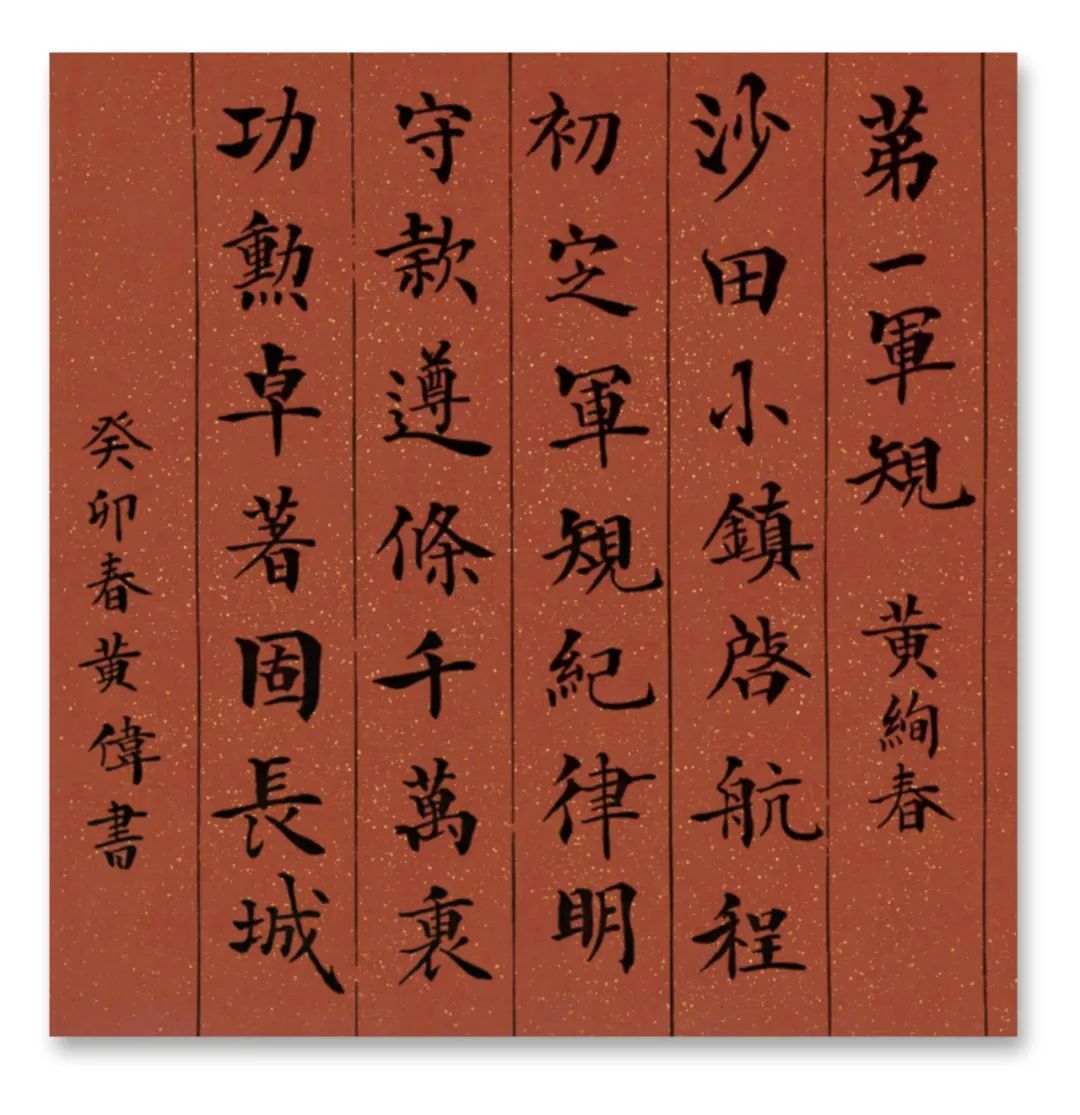 第一軍規 黃絢春
沙田小鎮啓航程
初定軍規紀律明
守款遵條千萬裏
功勳卓著固長城
癸卯春黃偉書